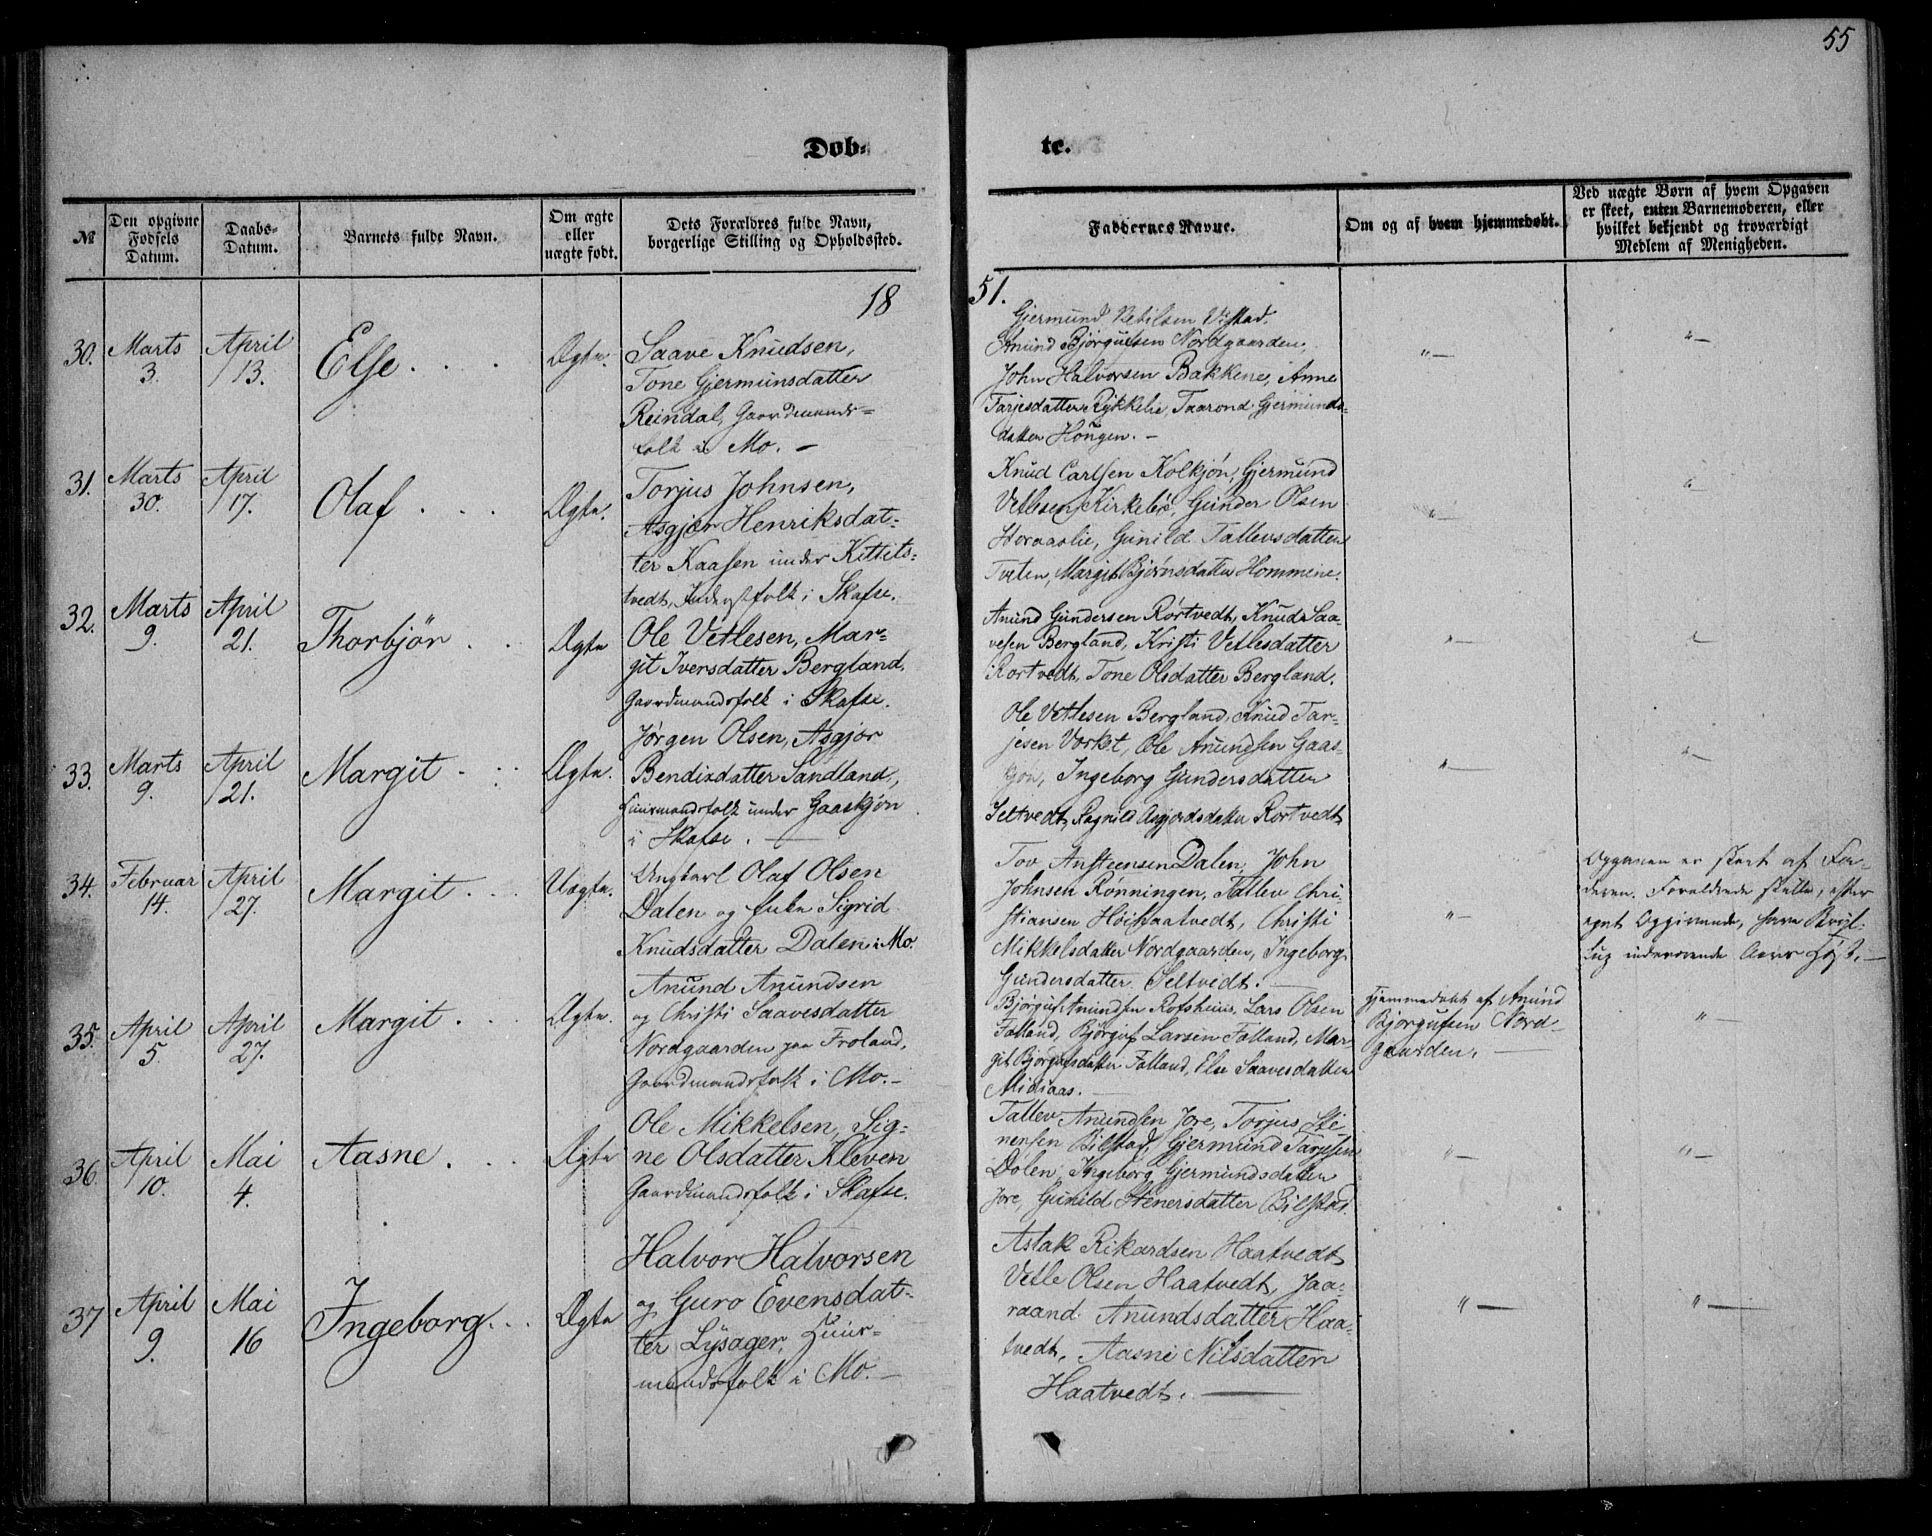 55
Døb-
te.
№
Den opgivne Fødsels Datum.
Daabs-Datum.
Barnets fulde Navn.
Om ægte eller uægte født.
Dets Forældres fulde Navn, borgerlige Stilling og Opholdssted.
Faddernes Navne.
Om og af hvem hjemmedøbt.
Ved uægte Børn af hvem Opgaven er skeet, enten Barnemoderen, eller hvilket bekjendt og troværdigt Medlem af Menigheden.
18
51.
30. Marts 3. April 13. Else. Ægte.
Saave Knudsen,
Tone Gjermunsdatter
Reindal, Gaardmands-
folk i Mo. -
Gjermund Ketilsen Vistad.
Anund Bjørgufsen Nordgaarden,
John Halvorsen Bakkene, Anne
Tarjesdatter Rykkelie, Taarond Gjermunds-
datter Hougen. -
"-
"-
31. Marts 30. April 17. Olaf Ægte.
Torjus Johnsen,
Asgjer Henriksdat-
ter Kaasen under Kittils-
tvedt, Inderstfolk i Skafse.
Knud Carlsen Kolkjøn, Gjermund
Vetlesen Kirkebø, Gunder Olsen
Storaaslie, Gunild Tallevsdatter
Tveten, Margit Bjørnsdatter Hommene.
"-
32. Marts 9. April 21. Thorbjør Ægte
Ole Vetlesen, Mar-
git Iversdatter Bergland.
Gaardmandsfolk i Skafse.
Anund Gundersen Rørtvedt, Knud Saa-
vesen Bergland, Kristi Vetlesdatter
Rørtvedt, Tone Olsdatter Bergland.
"-
33. Marts 9. April 21. Margit Ægte.
Jørgen Olsen, Asgjør
Bendixdatter Sandland,
Huusmandsfolk under Gaaskjøn
i Skafse. -
Ole Vetlesen Bergland, Knud Tar-
jesen Vørket, Ole Anundsen Gaas-
gøn, Ingeborg Gundersdatter
Seltvedt, Ragnild Asgjordsdatter Rørtvedt
"-
"-
34. Februar 14. April 27. Margit Uægte.
Ungkarl Olaf Olsen
Dalen og Enke Sigrid
Knudsdatter Dalen i Mo.
Tov Ansteensen Dalen, John
Johnsen Rønningen, Tallev Chri-
stiansen Høisaatvedt, Christi
Mikkelsdatter Nordgaarden, Ingeborg
Gundersdatter Seltvedt. -
"-
Opgaven er skeet af Fa-
deren. Forældrene skulle, efter
eget Opgivende, have Bryl-
lup indeværende Aars Høst. -
35. April 5. April 27. Margit Ægte.
Anund Anundsen
og Christi Saavesdatter
Nordgaarden paa Froland,
Gaardmandsfolk i Mo. -
Bjørguf Anundsen Rofshuus, Lars Olsen
Falland, Bjørguf Larsen Falland, Mar-
git Bjørgufsdatter Falland, Else Saavesdatter
Midiaas. -
Hjemmedøbt af Anund
Bjørgufsen Nord-
gaarden. -
"-
36. April 10. Mai 4. Aasne Ægte
Ole Mikkelsen, Sig-
ne Olsdatter Kleven
Gaardmandsfolk i Skafse.
Tallev Anundsen Jore, Torjus Ste-
nersen Bilstad, Gjermund Tarjesen
Dølen, Ingeborg Gjermundsdatter
Jore, Gunild Stenersdatter Bilstad.
"-
"-
37 April 9. Mai 16 Ingeborg Ægte
Halvor Halvorsen
og Guro Evensdat-
ter Lysager, Huus-
mandsfolk i Mo. -
Aslak Rikardsen Haatvedt
Vetle Olsen Haatvedt, Jaa-
raand Anundsdatter Haa-
tvedt, Aasne Nilsdatter
Haatvedt. -
"-
"-